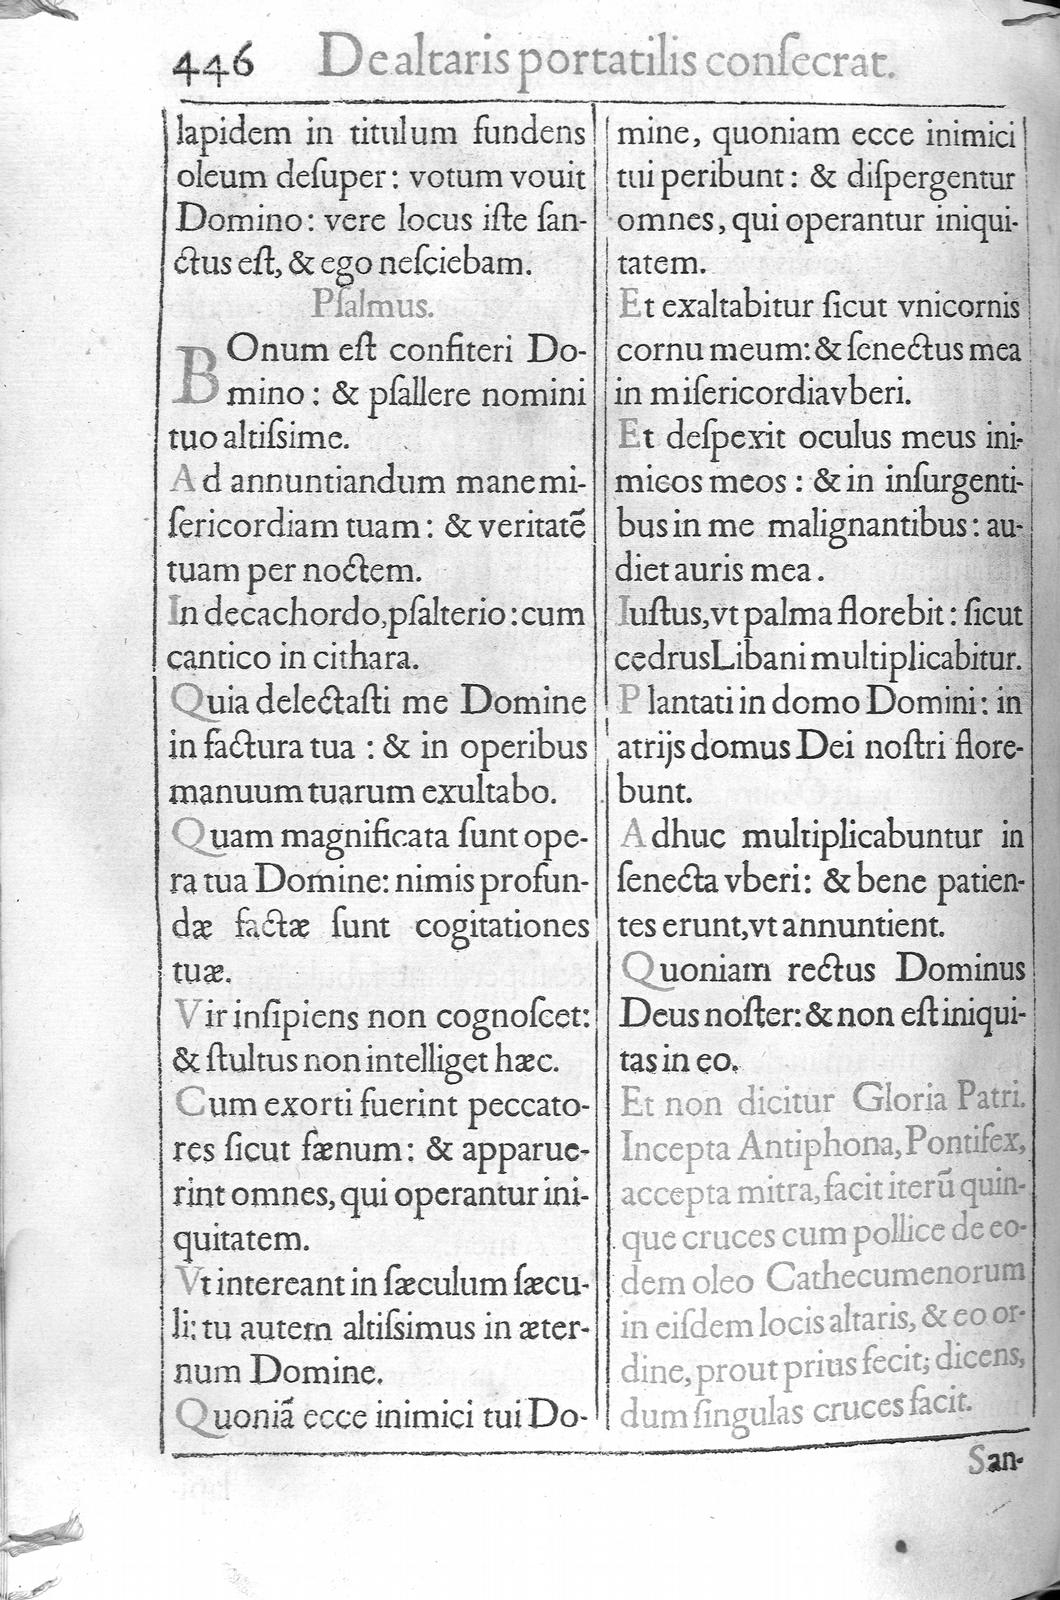 446 De altaris portatilis conſecrat.
lapidem in titulum fundens
oleum deſuper: votum vouit
Domino: vere locus iſte ſan-
ctus eſt, & ego neſciebam.
Pſalmus.
BOnum eſt confiteri Do-
mino: & pſallere nomini
tuo altiſsime.
Ad annuntiandum mane mi-
ſericordiam tuam: & veritatẽ
tuam per noctem.
In decachordo, pſalterio: cum
cantico in cithara.
Quia delectaſti me Domine
in factura tua : & in operibus
manuum tuarum exultabo.
Quam magnificata ſunt ope-
ra tua Domine: nimis profun-
dæ factæ ſunt cogitationes
tuæ.
Vir inſipiens non cognoſcet:
& ſtultus non intelliget hæc.
Cum exorti fuerint peccato-
res ſicut fænum: & apparue-
rint omnes, qui operantur ini-
quitatem.
Vt intereant in ſæculum ſæcu-
li: tu autem altiſsimus in æter-
num Domine.
Quoniã ecce inimici tui Do-
mine, quoniam ecce inimici
tui peribunt: & diſpergentur
omnes, qui operantur iniqui-
tatem.
Et exaltabitur ſicut vnicornis
cornu meum: & ſenectus mea
in miſericordia vberi.
Et deſpexit oculus meus ini-
micos meos : & in inſurgenti-
bus in me malignantibus: au-
diet auris mea.
Iuſtus, vt palma florebit: ſicut
cedrus Libani multiplicabitur.
Plantati in domo Domini: in
atrijs domus Dei noſtri flore-
bunt.
Adhuc multiplicabuntur in
ſenecta vberi: & bene patien-
tes erunt, vt annuntient.
Quoniam rectus Dominus
Deus noſter: & non eſt iniqui-
tas in eo.
Et non dicitur Gloria Patri.
Incepta Antiphona, Pontifex,
accepta mitra, facit iterũ quin-
que cruces cum pollice de eo-
dem oleo Cathecumenorum
in eiſdem locis altaris, & eo or-
dine, prout prius fecit; dicens,
dum ſingulas cruces facit.
San-